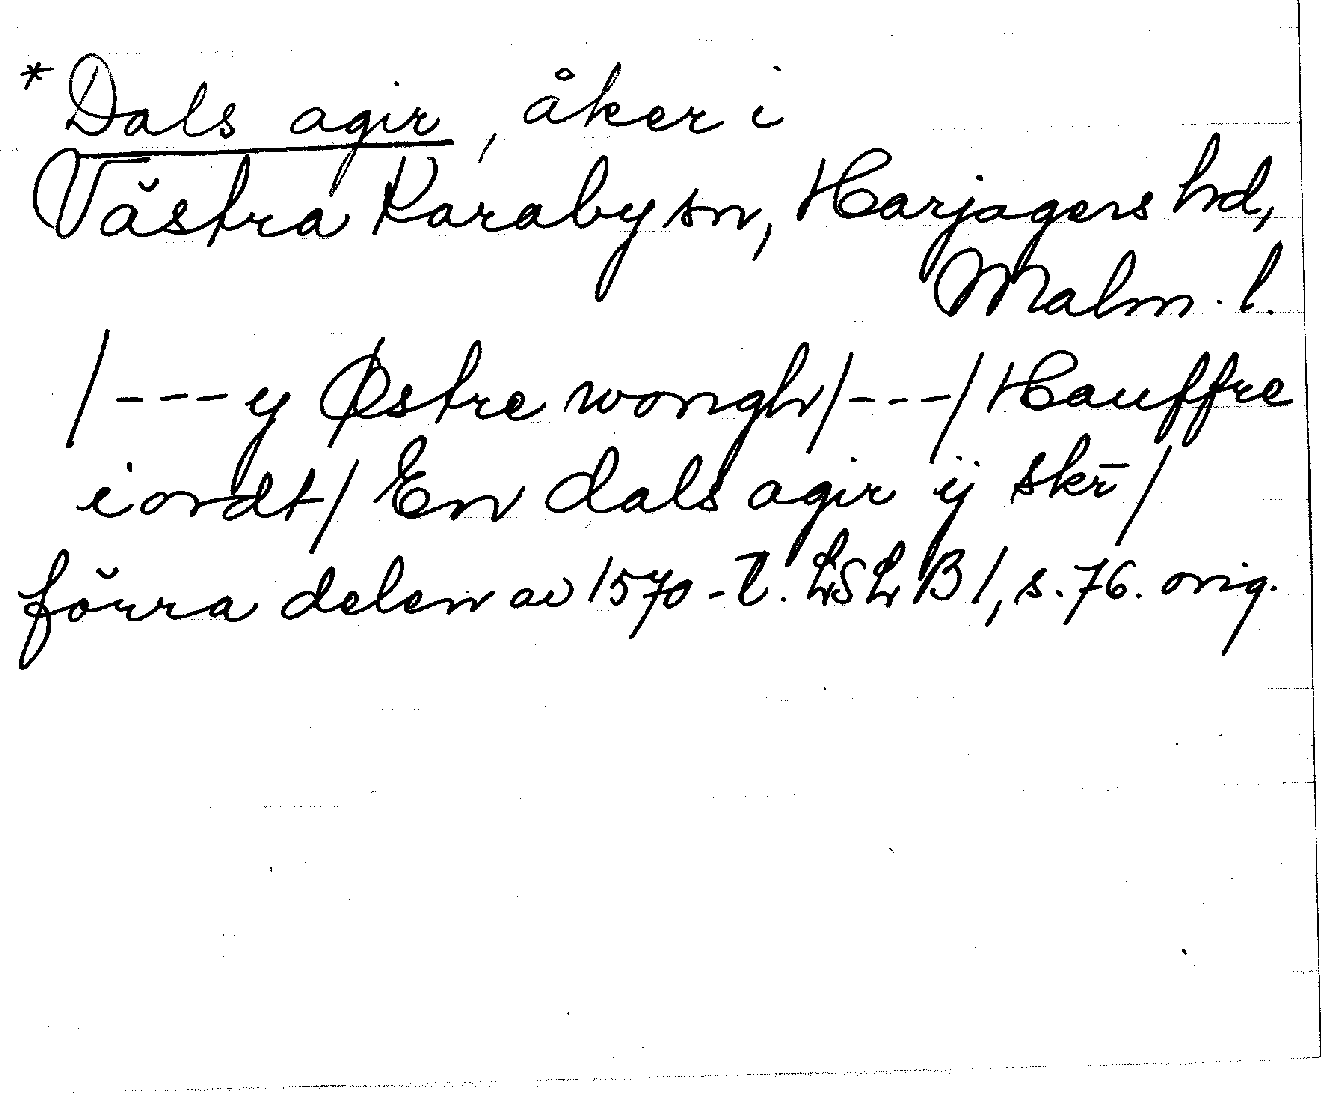 *Dals agir, åker i
Västra Karaby sn, Harjagers hd,
Malm. l.
/---y Østre wongh/---/Hauffre
iordt/ En dals agir ij skr̄/
förra delen av 1570-t. LSLB1, s. 76. orig.